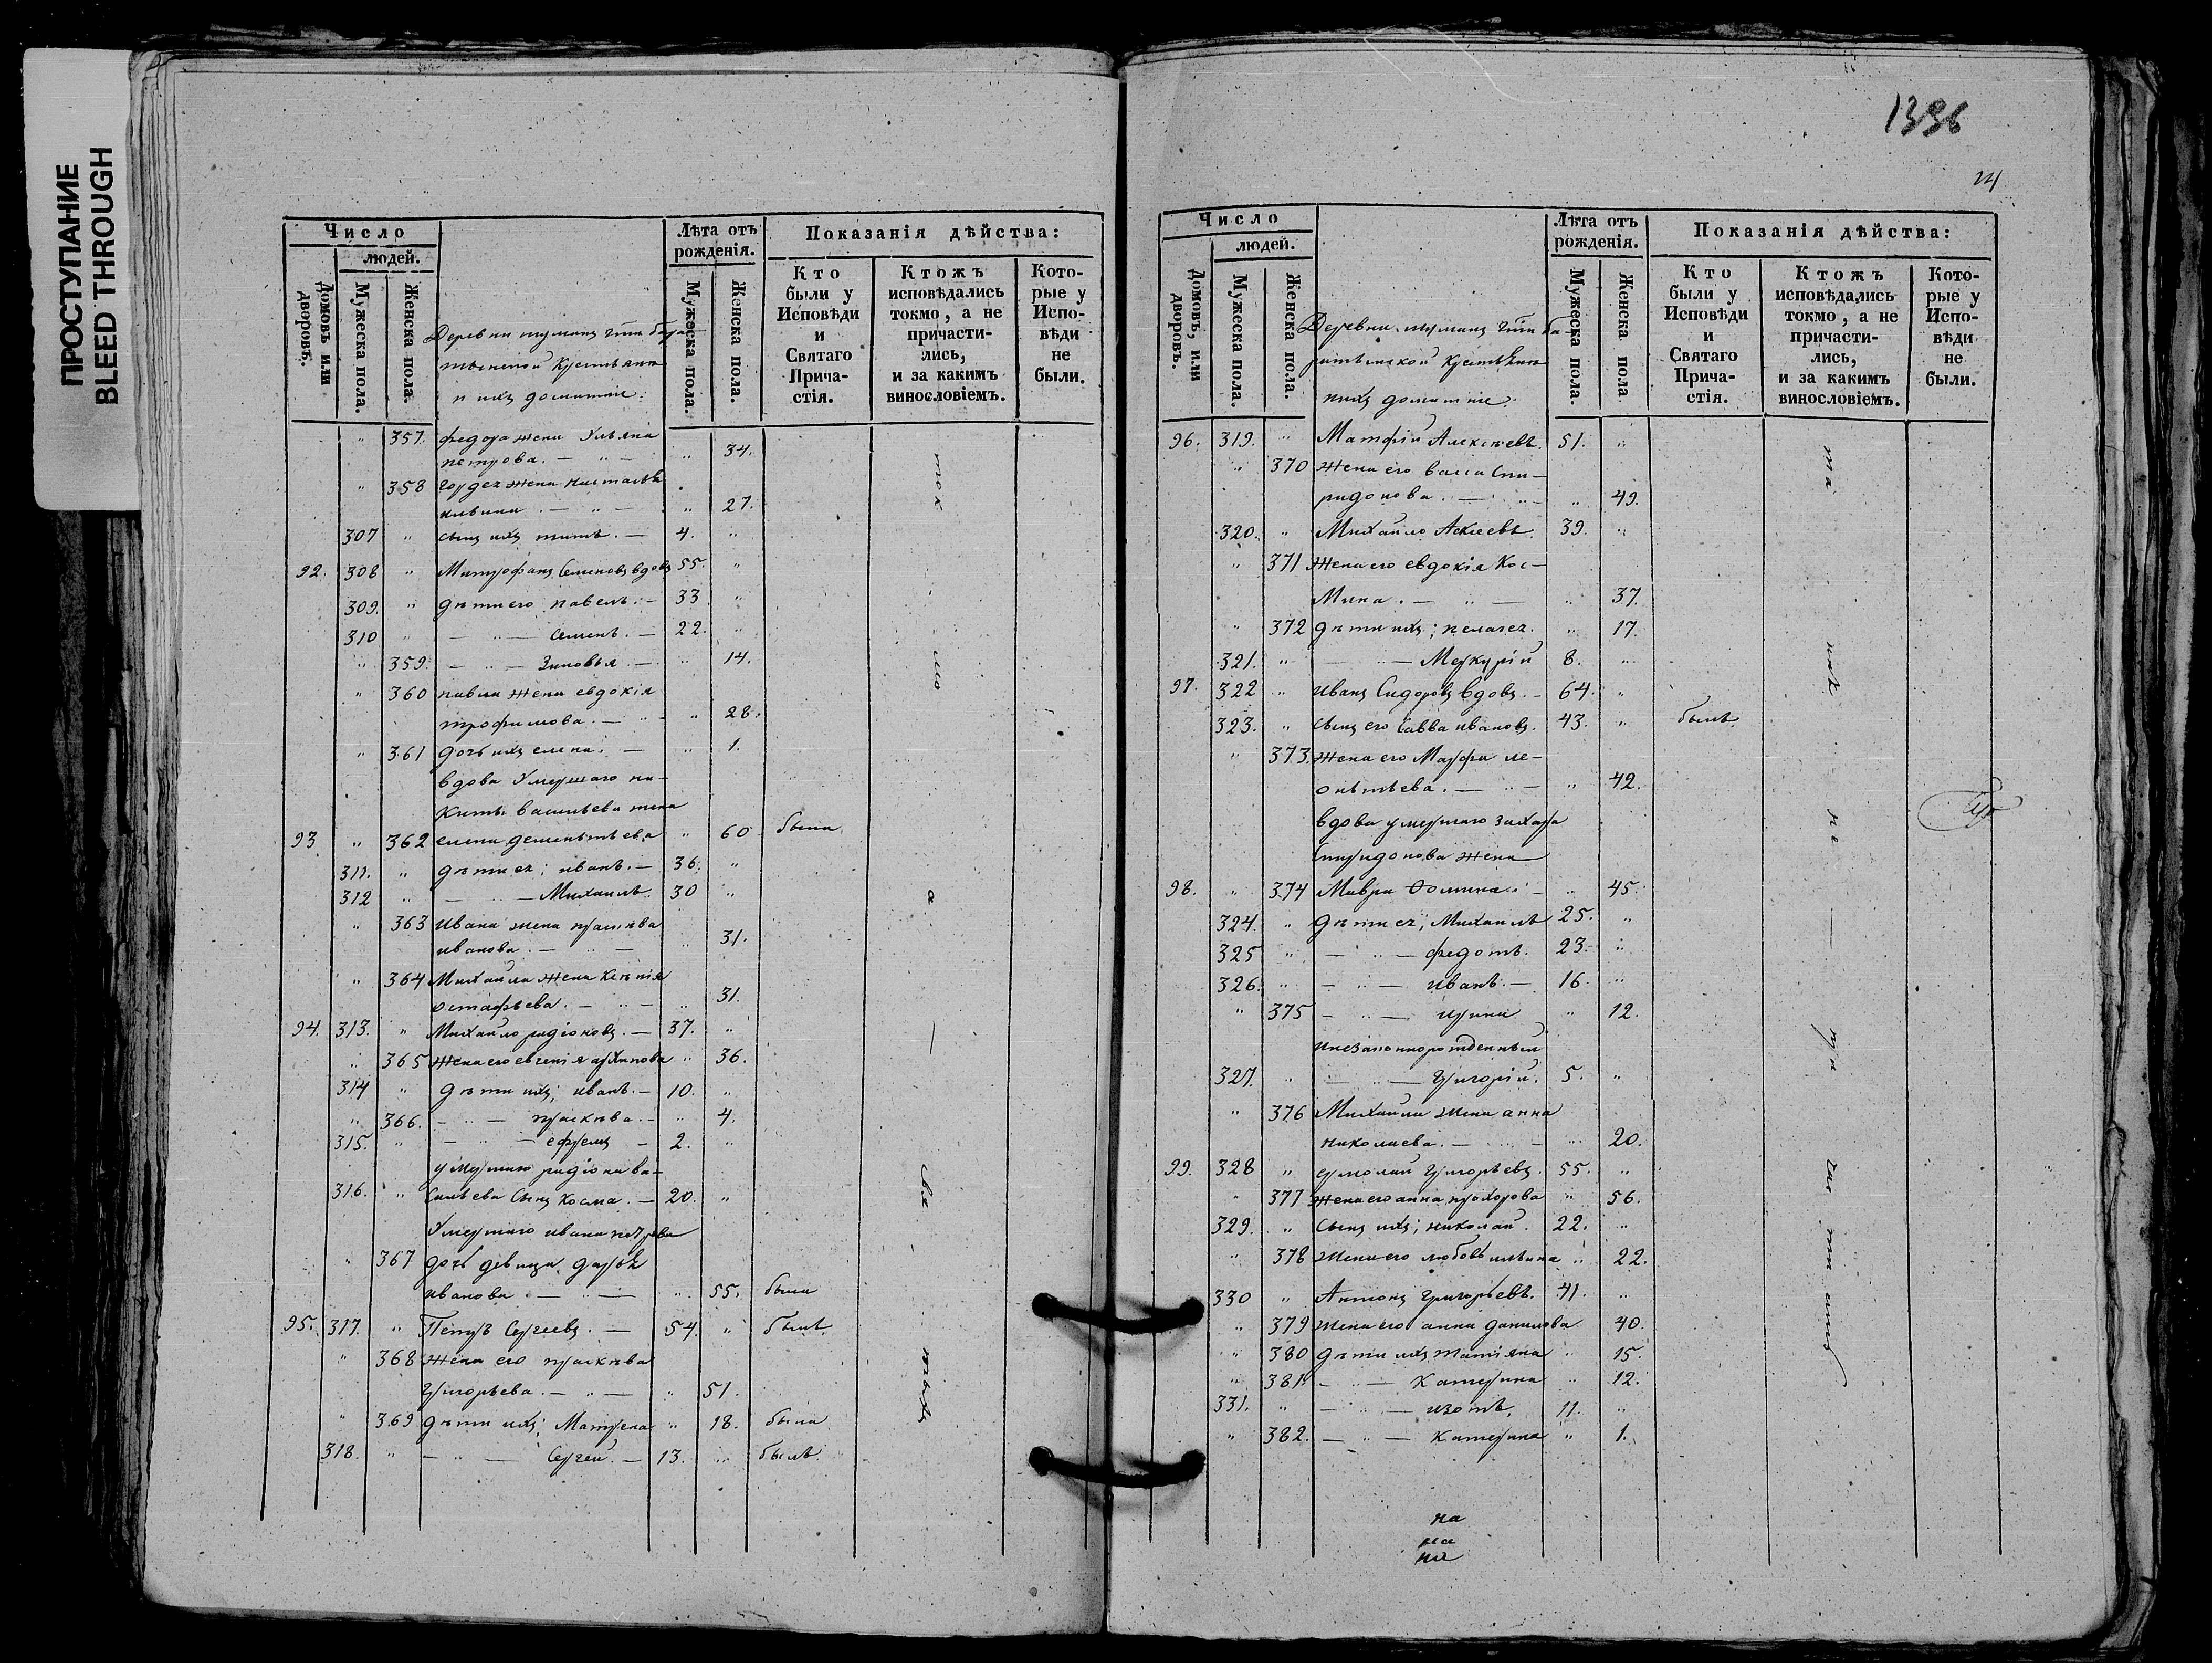 ПРОСТУПАНИЕ
BLEED THROUGH
Число
людей.
Домовъ или дворовъ.
Мужеска пола.
Женска пола.
Лѣта отъ рожденія.
Мужеска пола.
Женска пола.
Показанія дѣйства:
Кто были у Исповѣди и Святаго Прича-стія.
Ктожъ исповѣдались токмо, а не причасти-лись, и за какимъ винословіемъ.
Кото-рые у Испо-вѣди не были.
Деревни
крестьяне
и ихъ домашніе:
" 357. федора жена Ульяна
петрова. — " — " 34.
" 358 жена
ильина . — " — " 27.
307 " сынъ ихъ титъ. — 4. "
92. 308 " Митрофанъ Семеновъ вдовъ 55. "
309. " дѣти его павелъ. — 33 "
310 " — " — семенъ. — 22. "
" 359. — " — Зиновья. — " 14.
" 360 павла жена евдокія
трофимова. — " — " 28.
" 361 дочь ихъ елена. — " 1.
вдова Умершаго ни-
киты васильева жена
93 " 362 елена дементьева " 60 была
311. " дѣти ея; иванъ. — 36. "
312 " — " — Михаилъ. 30 "
" 363 Ивана жена прасковья
иванова. — " — " 31.
" 364 Михаила жена Ксенія
остафьева. — " — " 31.
94. 313. " Михайло родіоновъ. — 37. "
" 365 Жена его евгенія архипова " 36.
314 " дѣти ихъ; иванъ. — 10. "
" 366. — " — прасковья. — " 4.
315. " — " — ефремъ — 2. "
умершаго родіона ва-
316. " сильева Сынъ Косма. — 20. "
Умершаго ивана петрова
" 367 дочь девица дарья
иванова. — " — " 55. была
95. 317. " Петръ Сергеевъ. — 54. " былъ.
" 368 жена его прасковья
Григорьева. — " — " 51.
" 369 дѣти ихъ; Матрена " 18. была
318. " — " — Сергей. — 13. " былъ.
1396
Число
людей.
Домовъ, или дворовъ.
Мужеска пола.
Женска пола.
Лѣта отъ рожденія.
Мужеска пола.
Женска пола
Показанія дѣйства:
Кто были у Исповѣди и Святаго Прича-стія.
Ктожъ исповѣдались токмо, а не причасти-лись, и за какимъ винословіемъ.
Кото-рые у Испо-вѣди не были.
Деревни
крестьяне
и ихъ домашніе:
96. 319. " Матфій Алексѣевъ. 51. "
" 370 Жена его васса Спи-
ридонова. — " — " 49.
320. " Михайло 39. "
" 371 Жена его евдокія Кос-
мина. — " — " 37.
" 372 дѣти ихъ; пелагея. " 17.
321. " — " — Меркурій 8. "
97. 322 " Иванъ Сидоровъ вдовъ. — 64. "
323. " сынъ его Савва ивановъ. 43. " былъ.
" 373. Жена его Марфа ле-
онтьева. — " — " 42.
вдова умершаго захара
Спиридонова жена
98. " 374 Мавра Фомина — " 45.
324. " дѣти ея; Михаилъ 25. "
325 " — " — федотъ. 23. "
326. " — " — иванъ. — 16. "
" 375 — " — ирина " 12.
незаконнорожденный
327. " — " — Григорій. 5. "
" 376 Михаила жена анна
николаева. — " — " 20.
99. 328 " ермолай Григорьевъ. 55. "
" 377 Жена его анна прохорова " 56.
329. " Сынъ ихъ; николай. 22. "
" 378 Жена его любовь ильина " 22.
330 " Антонъ Григорьевъ. 41. "
" 379 Жена его анна данилова 40.
" 380 дѣти ихъ татіяна " 15.
" 381. — " — Катерина " 12.
331. " — " — изотъ. 11. "
" 382. — " — Катерина " 1.
на
на
на